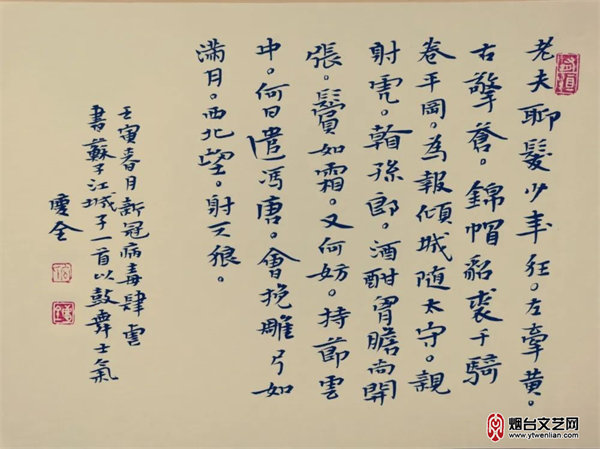 老夫聊髮少年狂。左牽黃。
右擎蒼。錦帽貂裘千騎
卷平岡。為報傾城隨太守。親
射虎。看孫郎。酒酣胷膽尚開
張。鬢如霜。又何妨。持節雲
中。何日遣馮唐。會挽雕弓如
滿月。西北望。射天狼。
壬寅春月新冠病毒肆虐
書蘇子江城子一首以鼓舞士氣
慶全
烟台文艺网
www.ytwenlian.com